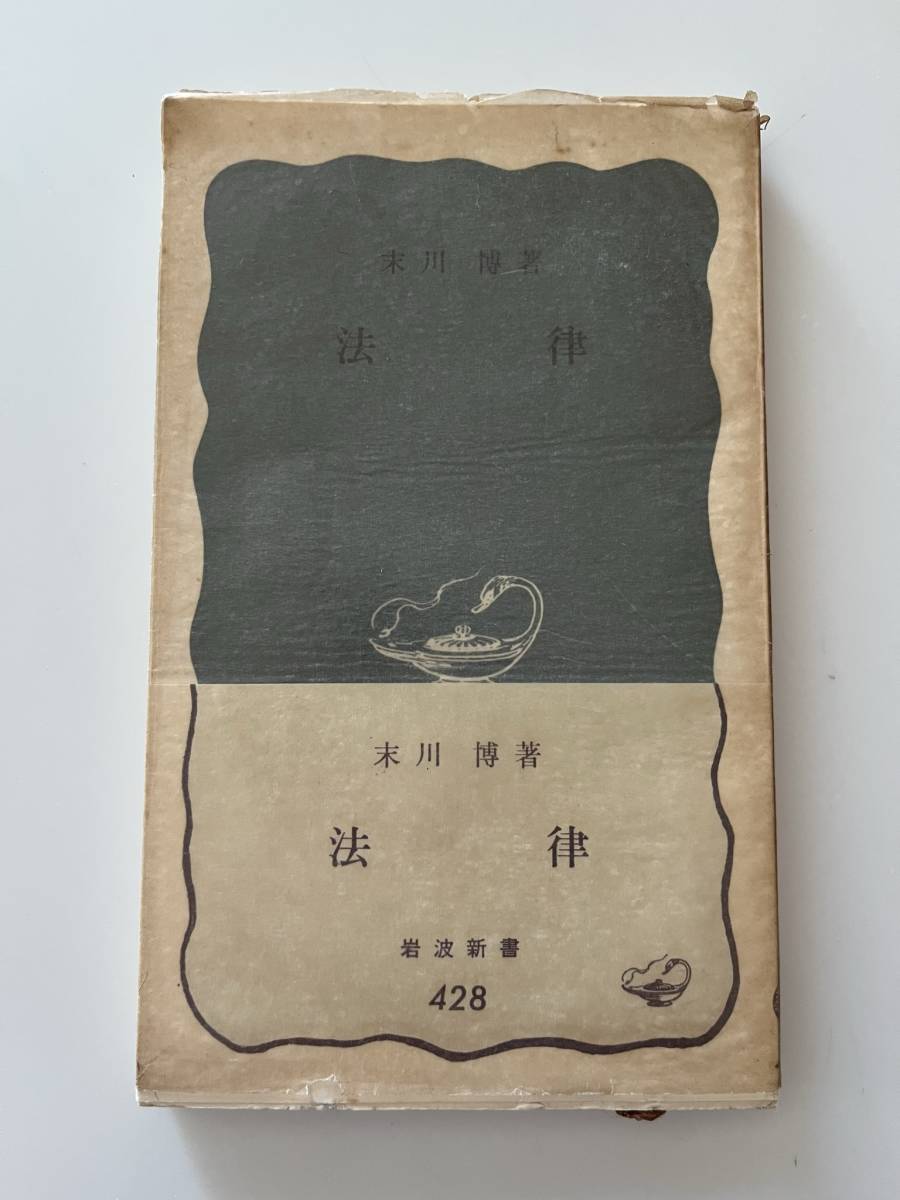 末川 博著
法 律
末川 博著
法 律
岩波新書
428